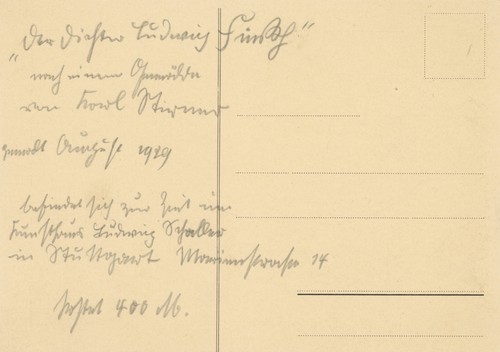 "Der Dichter Ludwig Finckh"
nach einem Gemälde
von Karl Stirner
gemalt August 1929
befindet sich zur Zeit im
Kunsthaus Ludwig Schaller
in Stuttgart Marienstrasse 14
kostet 400 M.